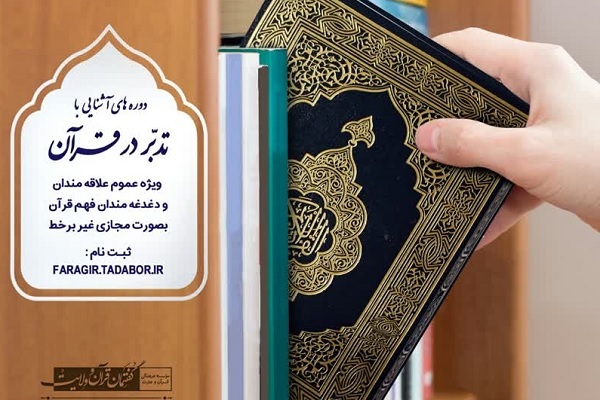 دوره های آشنایی با
تدبّر در قرآن
ویژه عموم علاقه مندان
و دغدغه مندان فهم قرآن
بصورت مجازی غیر برخط
ثبت نام :
FARAGIR.TADABOR.IR
موسسه فرهنگی
قرآن و عترت
گفتمان قرآن و ولایت